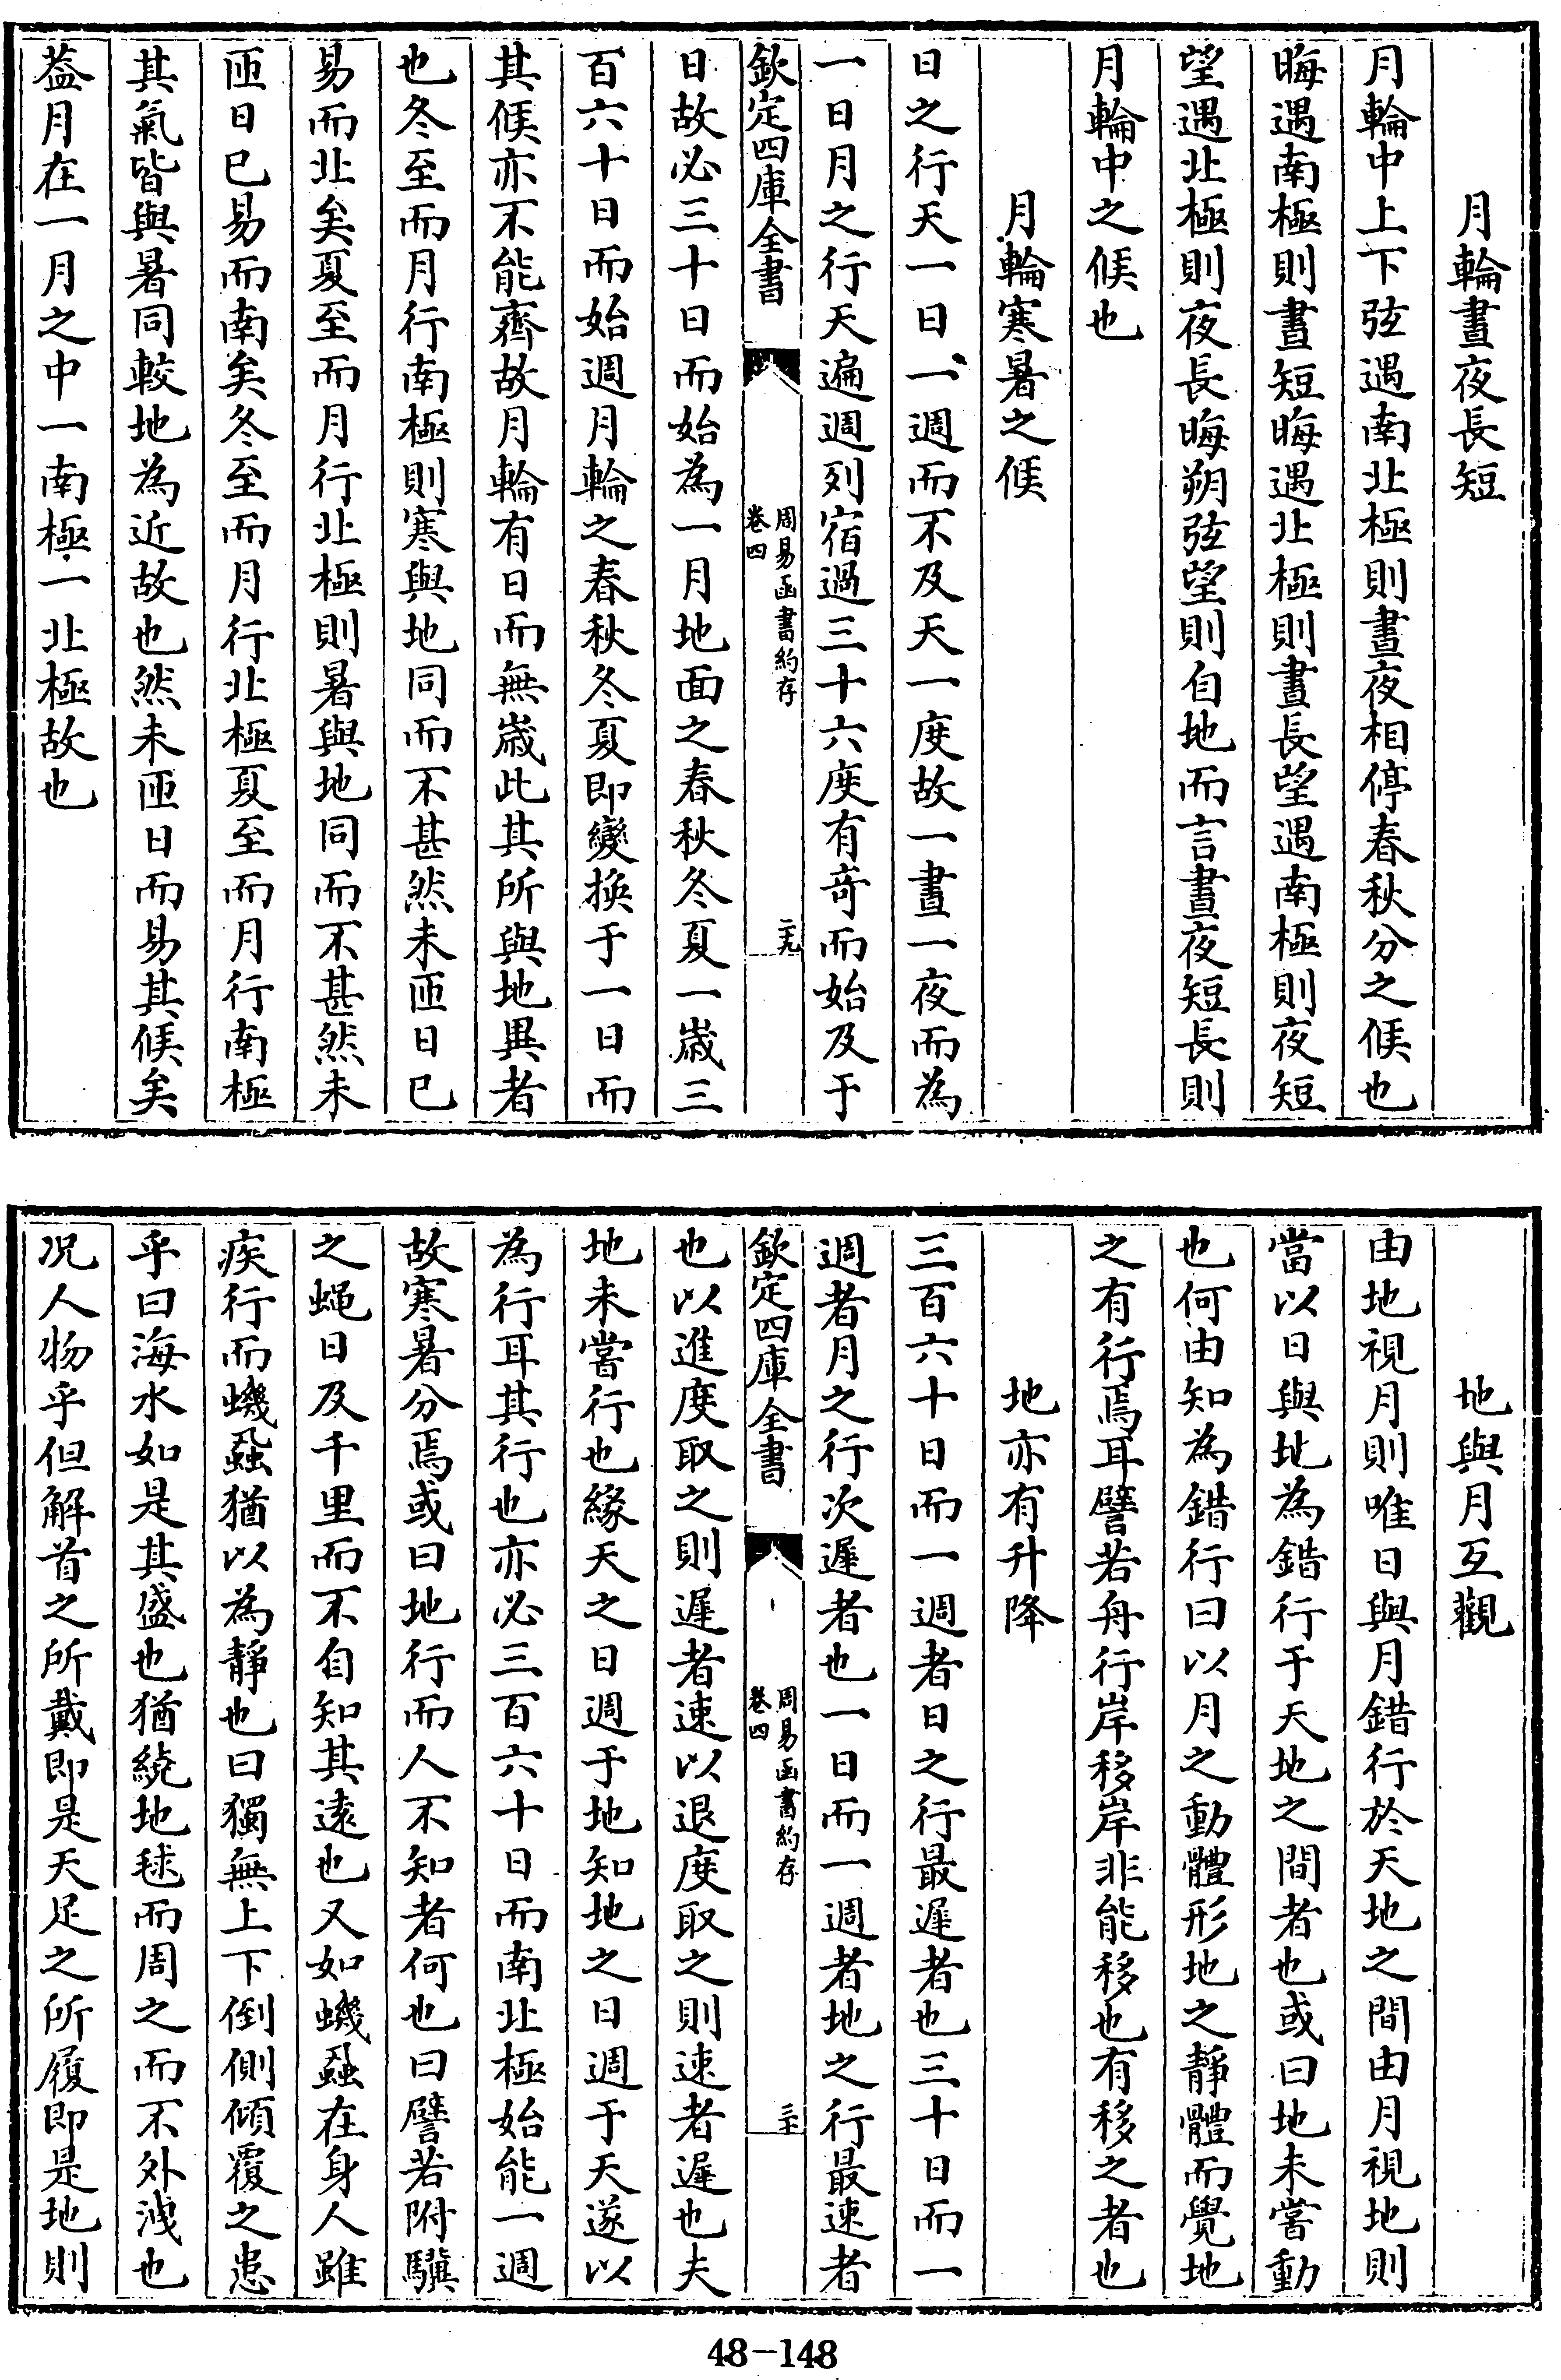 月輪晝夜長短
月輪中上下弦遇南北極則晝夜相停春秋分之候也
晦遇南極則晝短晦遇北極則晝長望遇南極則夜短
望遇北極則夜長晦朔弦望則自地而言晝夜短長則
月輪中之候也
月輪寒暑之候
日之行天一日一週而不及天一度故一晝一夜而為
一日月之行天遍週列宿過三十六度有奇而始及于
欽定四庫全書
周易函書約存
卷四
二十九
日故必三十日而始為一月地面之春秋冬夏一歲三
百六十日而始週月輪之春秋冬夏即變換于一日而
其候亦不能齊故月輪有日而無歲此其所與地異者
也冬至而月行南極則寒與地同而不甚然未匝日已
易而北矣夏至而月行北極則暑與地同而不甚然未
匝日已易而南矣冬至而月行北極夏至而月行南極
其氣皆與暑同較地為近故也然未匝日而易其候矣
葢月在一月之中一南極一北極故也
地與月互觀
由地視月則唯日與月錯行於天地之間由月視地則
當以日與地為錯行于天地之間者也或曰地未嘗動
也何由知為錯行曰以月之動體形地之靜體而覺地
之有行焉耳譬若舟行岸移岸非能移也有移之者也
地亦有升降
三百六十日而一週者日之行最遲者也三十日而一
週者月之行次遲者也一日而一週者地之行最速者
欽定四庫全書
周易函書約存
卷四
三十
也以進度取之則遲者速以退度取之則速者遲也夫
地未嘗行也緣天之日週于地知地之日週于天遂以
為行耳其行也亦必三百六十日而南北極始能一週
故寒暑分焉或曰地行而人不知者何也曰譬若附驥
之蝇日及千里而不自知其遠也又如蟣蝨在身人雖
疾行而蟣蝨猶以為靜也曰獨無上下倒側傾覆之患
乎曰海水如是其盛也猶繞地毬而周之而不外洩也
况人物乎但解首之所戴即是天足之所履即是地則
48-148